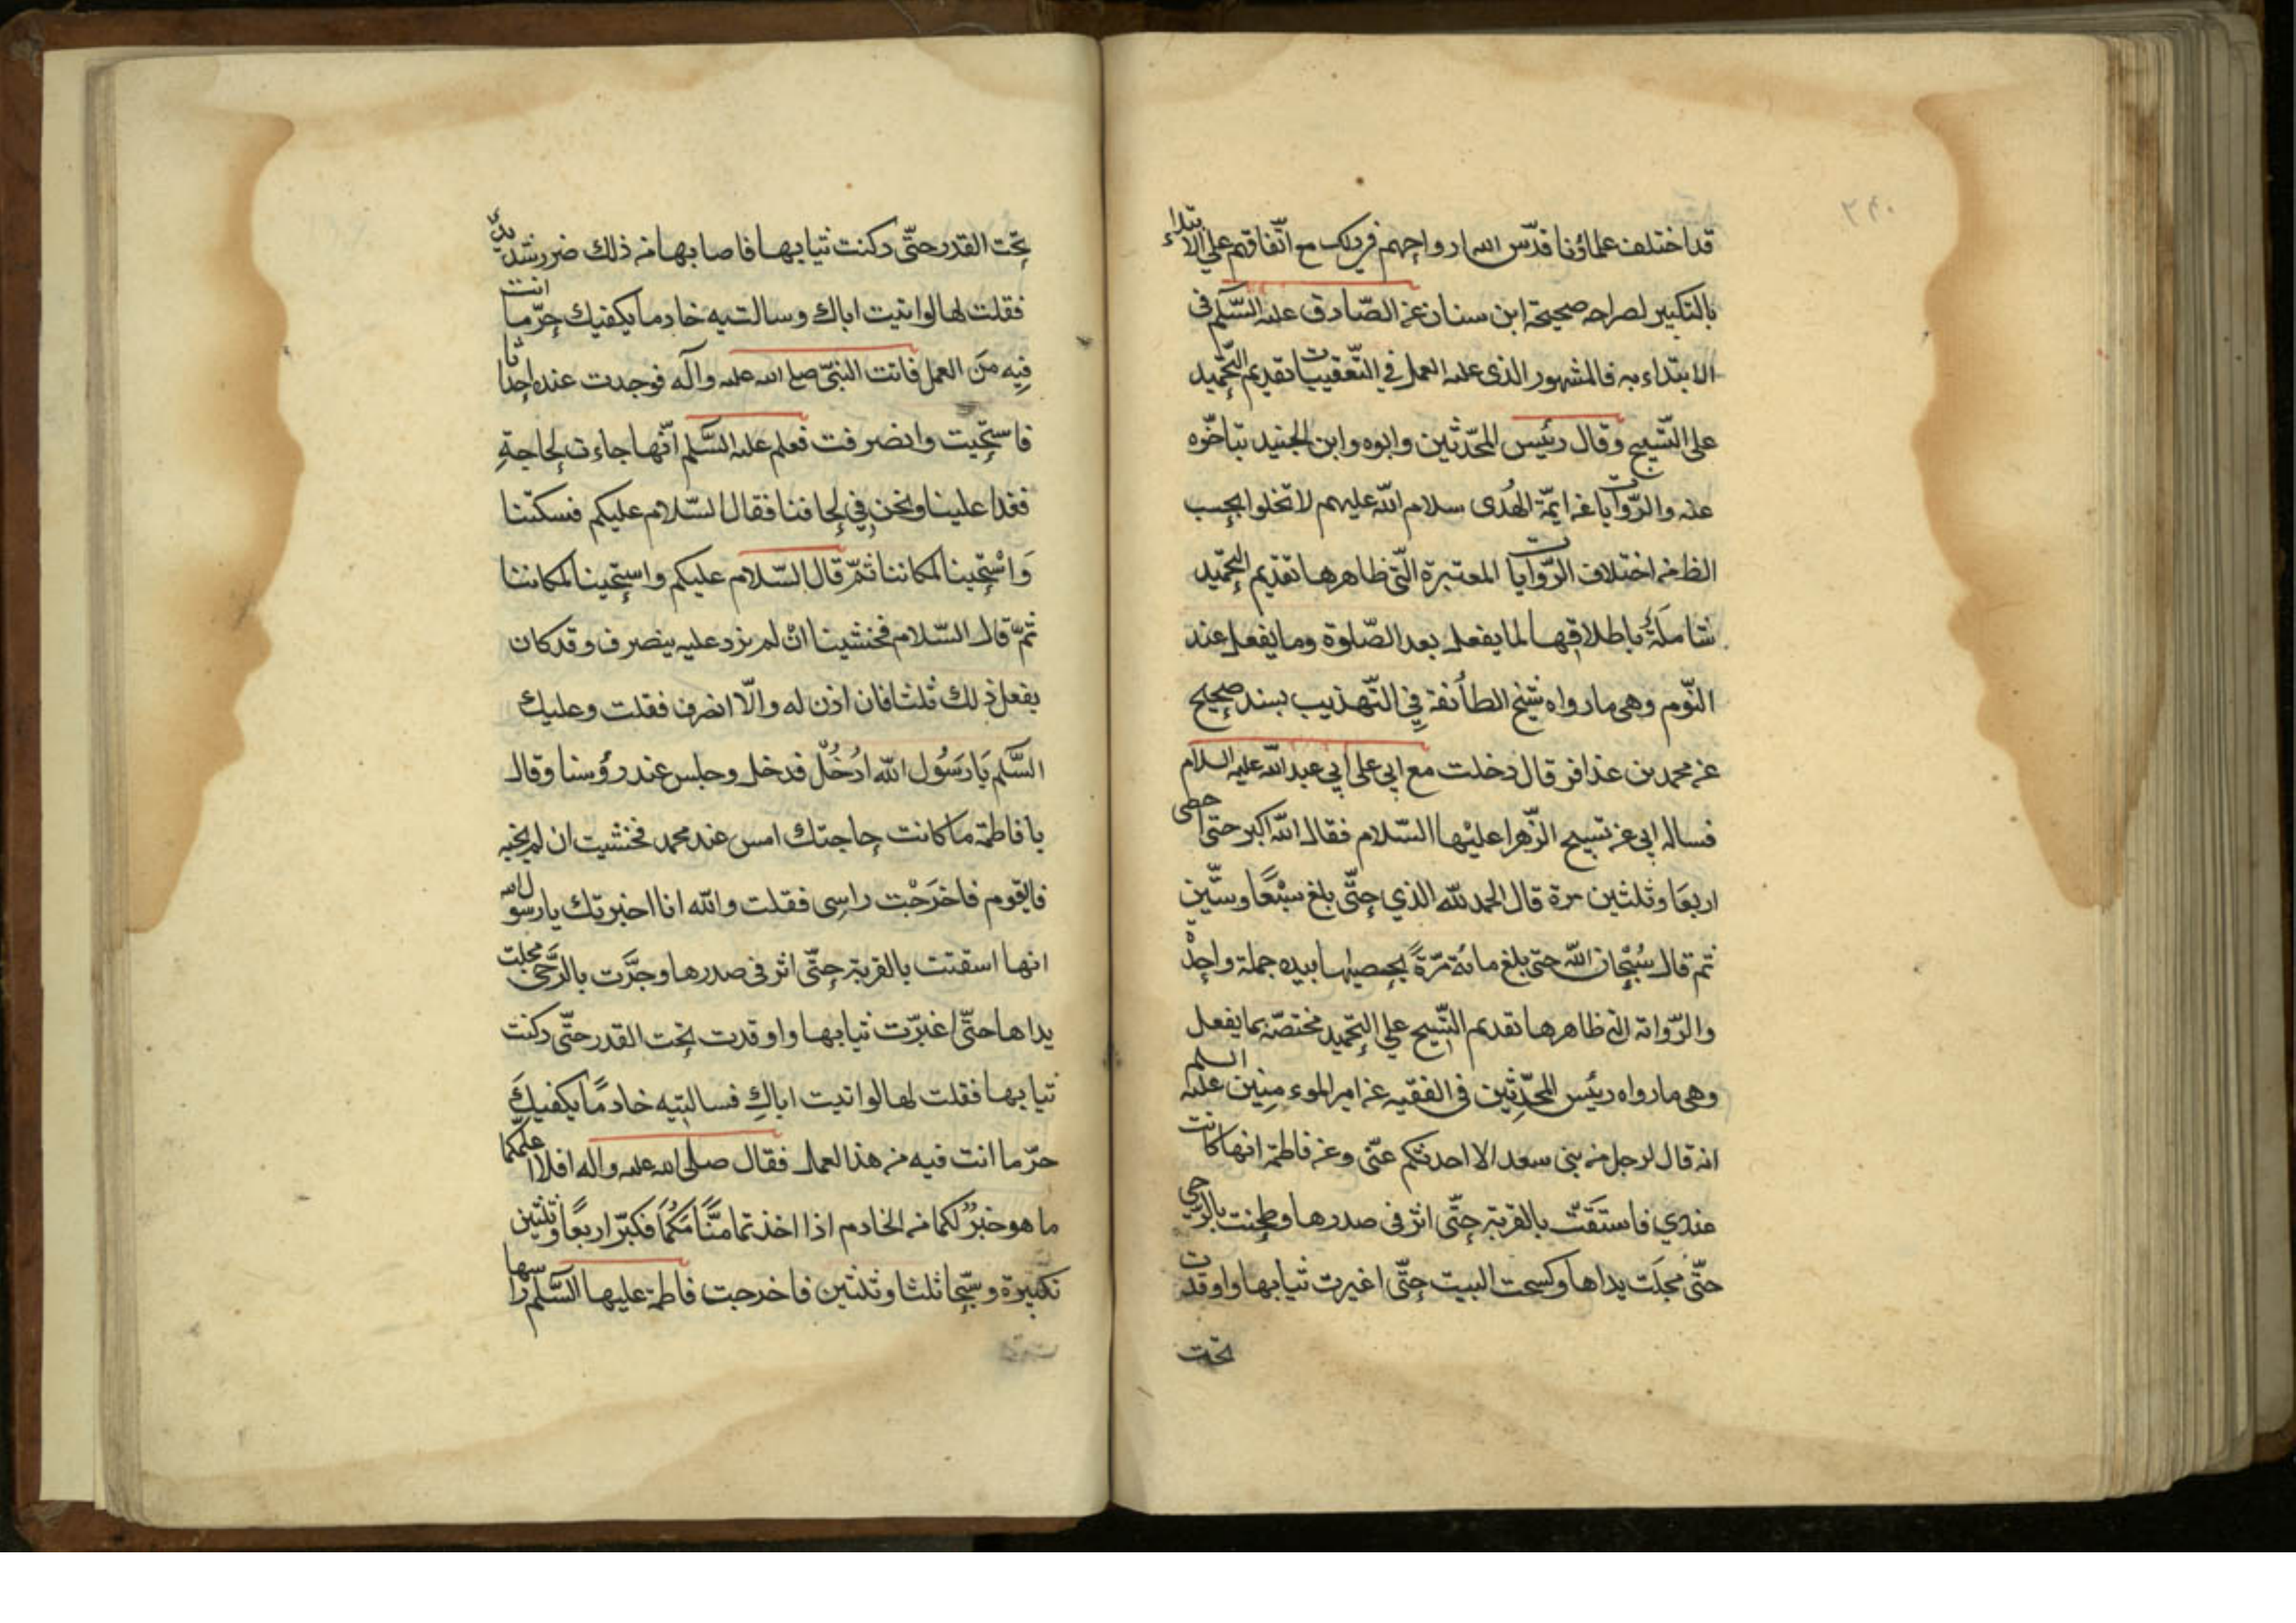 ٢٤٠
قد اختلف علماؤنا قدّس الله ارواحهم في ذلك مع اتّفاقهم علي الابتداء
بالتكبير لصراحه صحيحة ابن سنان عن الصّادق عليه السّلم في
الابتداء به فالمشهور الذي عليه العمل في التّعقيبات تقديم التّحميد
على التّسبيح وقال رئيس المحدّثين وابوه وابن الجنيد بتاخّره
عنه والرّوايات عن ايمّة الهُدى سلام الله عليهم لا تخلوا بحسب
الظ من اختلاف الرّوايات المعتبرة الّتي ظاهرها تقديم التّحميد
شاملَةٌ باطلاقها لما يفعل بعد الصّلوة وما يفعل عند
النّوم وهي ما رواه شيخ الطائفة في التّهذيب بسند صحيح
عن محمد بن عذافر قال دخلت مع ابي على ابي عبد الله عليه السلام
فساله ابي عن تسبيح الزّهرا عليْها السّلام فقال الله اكبر حتى احصى
اربعَا وثلثين مرة قال الحمد لله الذي حتّى بلغ سبْعًا وستّين
ثم قال سُبْحان الله حتى بلغ مائة مرّةً يحصيها بيده جملة واحدة
والرّواية التي ظاهرها تقديم التّسبيح علي التّحميد مختصّة بما يفعل
وهي ما رواه رئيس المحدّثين في الفقيه عن امير الموءمنين عليه السلم
انه قال لرجل من بني سعد الا احدثكم عنّي وعن فاطمة انها كانت
عندي فاستَقَتْ بالقربة حتّى اثر في صدرها وطحنت بالرّحى
حتّى مجلَت يداها وكسحت البيت حتّى اغبرت ثيابها واوقدت
تحت
تحت القدر حتّى دكنت ثيابها فاصابها من ذلك ضرر شديد
فقلت لها لو اتيت اباك وسالتيه خادما يكفيك حرّ ما انت
فيه منَ العمل فاتت النبيّ صلي الله عليه وآله فوجدت عنده احداثا
فاستحيت وانصرفت فعلم عليه السَّلم انّها جاءت لحاجةٍ
فغدا علينا ونحن في لحافنا فقال السّلام عليكم فسكتنا
وَاسْتحيينا لمكاننا ثمّ قال السّلام عليكم واستحيينا لمكاننا
ثمّ قال السّلام فخشينا انْ لم نرد عليه ينصرف وقد كان
يفعل ذلك ثلثا فان اذن له والّا انصرف فقلت وعليك
السَّلم يَا رَسُول الله ادْخُلْ فدخل وجلس عند رؤسنا وقال
يا فاطمة ما كانت حاجتك امس عند محمد فخشيت ان لم يجبه
فايقوم فاخرَجْت راسي فقلت والله انا اخبرتك يا رسول الله
انها اسقتت بالقربة حتّى اثر في صدرها وجرَّت بالرَّحى مجلت
يداها حتّى اغبرّت ثيابها واوقدت تحت القدر حتّى دكنت
ثيابها فقلت لها لو اتيت اباكِ فسالتيه خادمًا يكفيكَ
حرّ ما انت فيه من هذا العمل فقال صلى الله عليه واله افلا اعلمكما
ما هو خيرٌ لكما من الخادم اذا اخذتما منَامَكُمَا فكبّر اربعًا وثلثين
تكبيرة وسبّحا ثلثا وثلثين فاخرجت فاطمة عليها السَّلم راسها